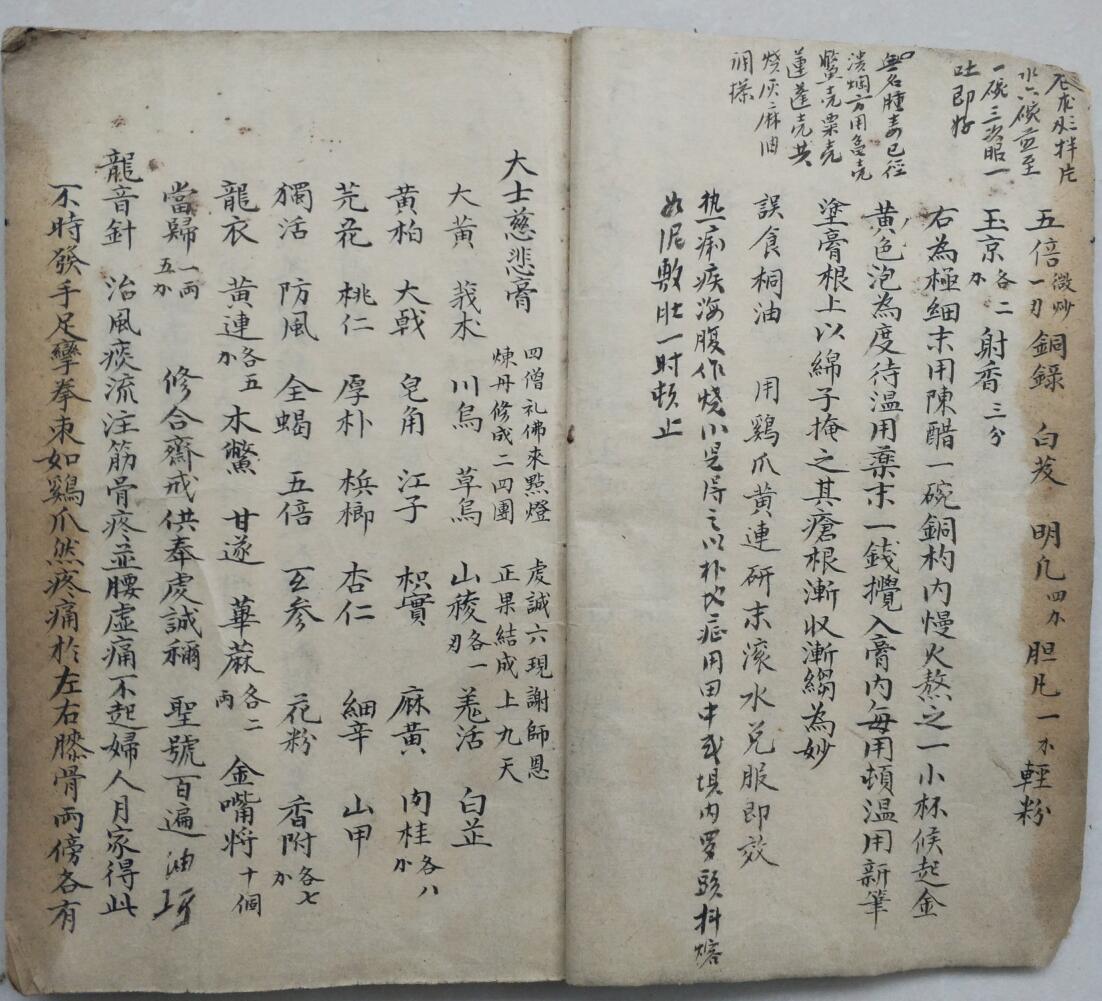 水六碗煎至
一碗三次服一
吐即好
無名腫毒已經
潰爛方用龜壳
鱉壳栗壳
蓮蓬壳共
燒灰麻油
調搽
五倍一刄微炒 銅錄 白芨 明凡四分 胆凡一分 輕粉
玉京各二分 射香三分
右為極細末用陳醋一碗銅杓內慢火熬之一小杯候起金
黃色泡為度待溫用藥末一錢攪入膏內每用頓溫用新筆
塗膏根上以綿子掩之其瘡根漸収漸縐為妙
誤食桐油 用鷄爪黃連研末滾水兌服即效
热痢疾海腹作燒小兒得之以朴地症用田中或垻內
如泥敷肚一时頓止
大士慈悲膏 四僧礼佛來點燈 虔誠六現謝師恩
煉丹修成二四團 正果結成上九天
大黃 莪朮 川烏 草烏 山稜各一刄 羌活 白芷
黃柏 大戟 皂角 江子 枳實 麻黃 肉桂各八分
芫花 桃仁 厚朴 梹榔 杏仁 細辛 山甲
獨活 防風 全蝎 五倍 玄参 花粉 香附各七分
龍衣 黃連各五分 木鱉 甘遂 萆蔴各二両 金嘴将十個
當歸一両五分 修合齋戒供奉虔誠稱 聖號百遍 油
龍音針 治風痰流注筋骨疼並腰虛痛不起婦人月家得此
不時發手足攣拳束如鷄爪然疼痛於左右膝骨両傍各有